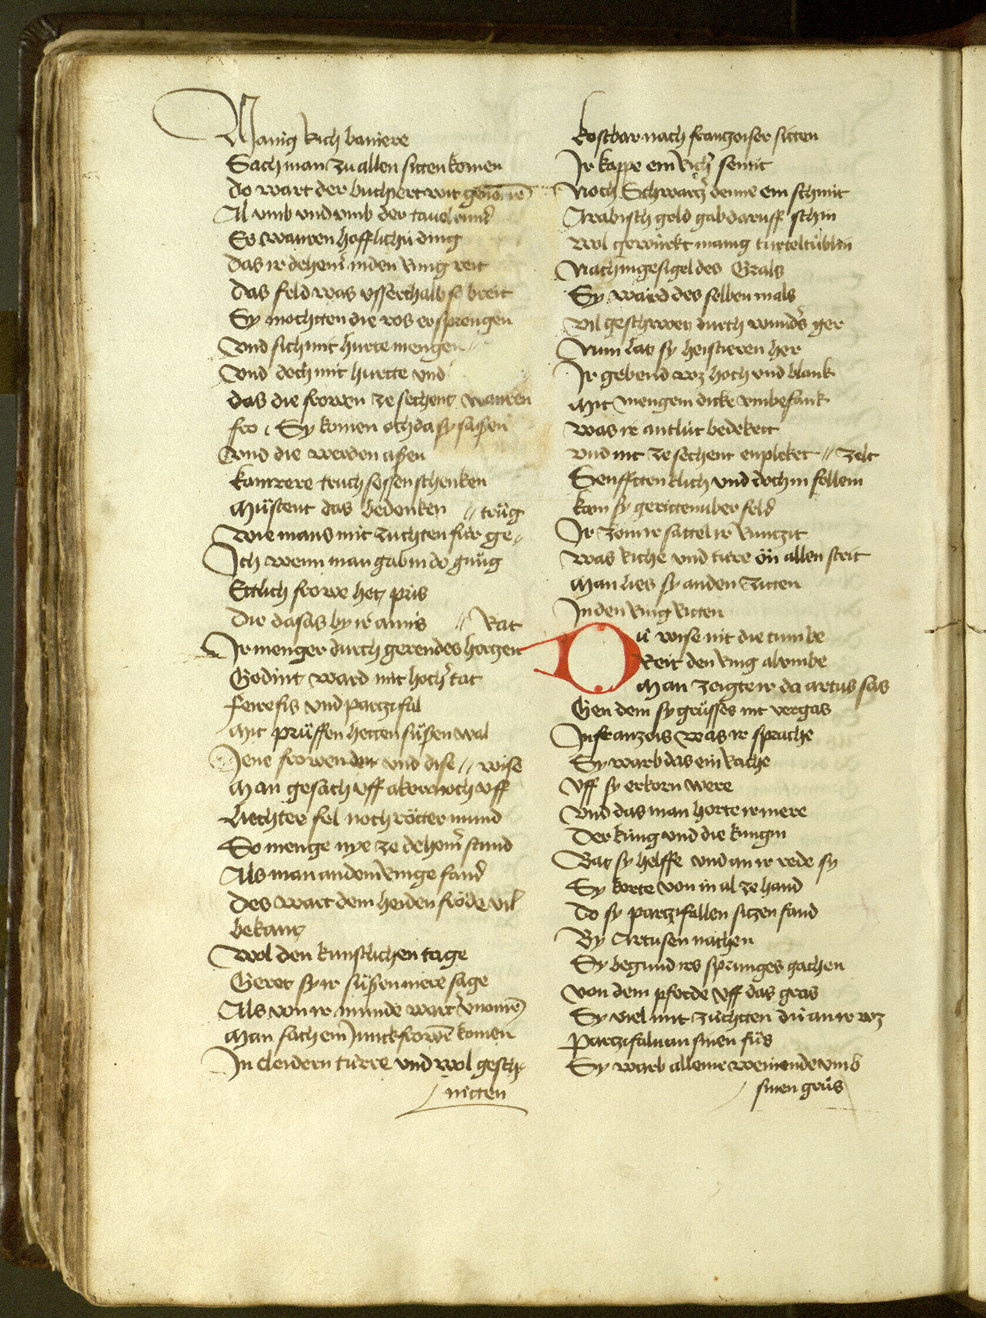 Manig rich baniere
Sach man zu allen sitten komen
Do wart der buchiert wit genomē
Al vmb vnd vmb der tauelrund
Es wauren hofflichů ding
Das ir dehein in den ring reit
Das feld was vsserhalb so breit
Sy mochtten die ros ersprengen
Vnd sich mit hurte mengen
Vnd doch mit hurtte vnd
das die frowen ze sechent wauren
fro Sy komen och da sy saßen
Vnd die werden aßen
kamrere truchsessen schenken
Můstent das bedenken // trůg
Wie mans mit zuchten für ge//
Ich wenn man gab in do gnůg
Ettlich frowe het pris
Die da sas by ir amis // Rat
Ir menger durch gerendes hertzen
Gedint ward mit hocher tat
Ferefis vnd parzifal
Mit prüffen hetten süßen wal
Jene frowen vnd dise // wise
Man gesach vff aker noch vff
Liechter fel noch rötter mund
So menge nye ze dehein stund
Als man an dem ringe fand
Des wart dem heiden fröde vil
bekant
Wol den kunftlichen tage
Geret sy ir süßen mere sage
Als von ir munde wart vernomē
Man sach ein Junckfrowē komen
In cleidern türre vnd wol gesch-
nitten
kostbar nach franzoiser sitten
Ir kappe ein rich semit
Noch Schwarz denne ein schmit
Arabisch gold gab daruff schin
Wol gewürkt manig türteltüblin
Nach ingesigel des Grals
Sy ward des selben mals
Vil geschowen durch wunders ger
Nun lat sy heistieren her
Ir gebend wz hoch vnd blank
Mit mengem dicke vmbefank
Was ir antlüt bedekett
vnd nit ze sechent enplekt // zelt
Senfftteklich vnd doch in follem
kam sy geritten über feld
Ir zom ir sattel ir runzit
Was riche vnd ture ön allen strit
Man lies sy an den zitten
In den ring ritten
Dü wise nit die tumbe
Reit den ring al vmbe
Man zeigte ir da artus sas
Gen dem sy grüsses nit vergas
In franzois was ir sprache
Sy warb das ein rache
Vff sy erkorn were
Vnd das man horte ir mere
Der küng vnd die kungin
Bat sy helffe vnd an ir rede sy
Sy korte von in al ze hand
Do sy parzifallen sizen fand
By Artusen nachen
Sy begund irs sprunges gachen
Von dem pferde vff das gras
Sy viel mit züchtten dü an ir wz
Parzifaln an sinen füs
Sy warb alleine weinende vmb
sinen grůs